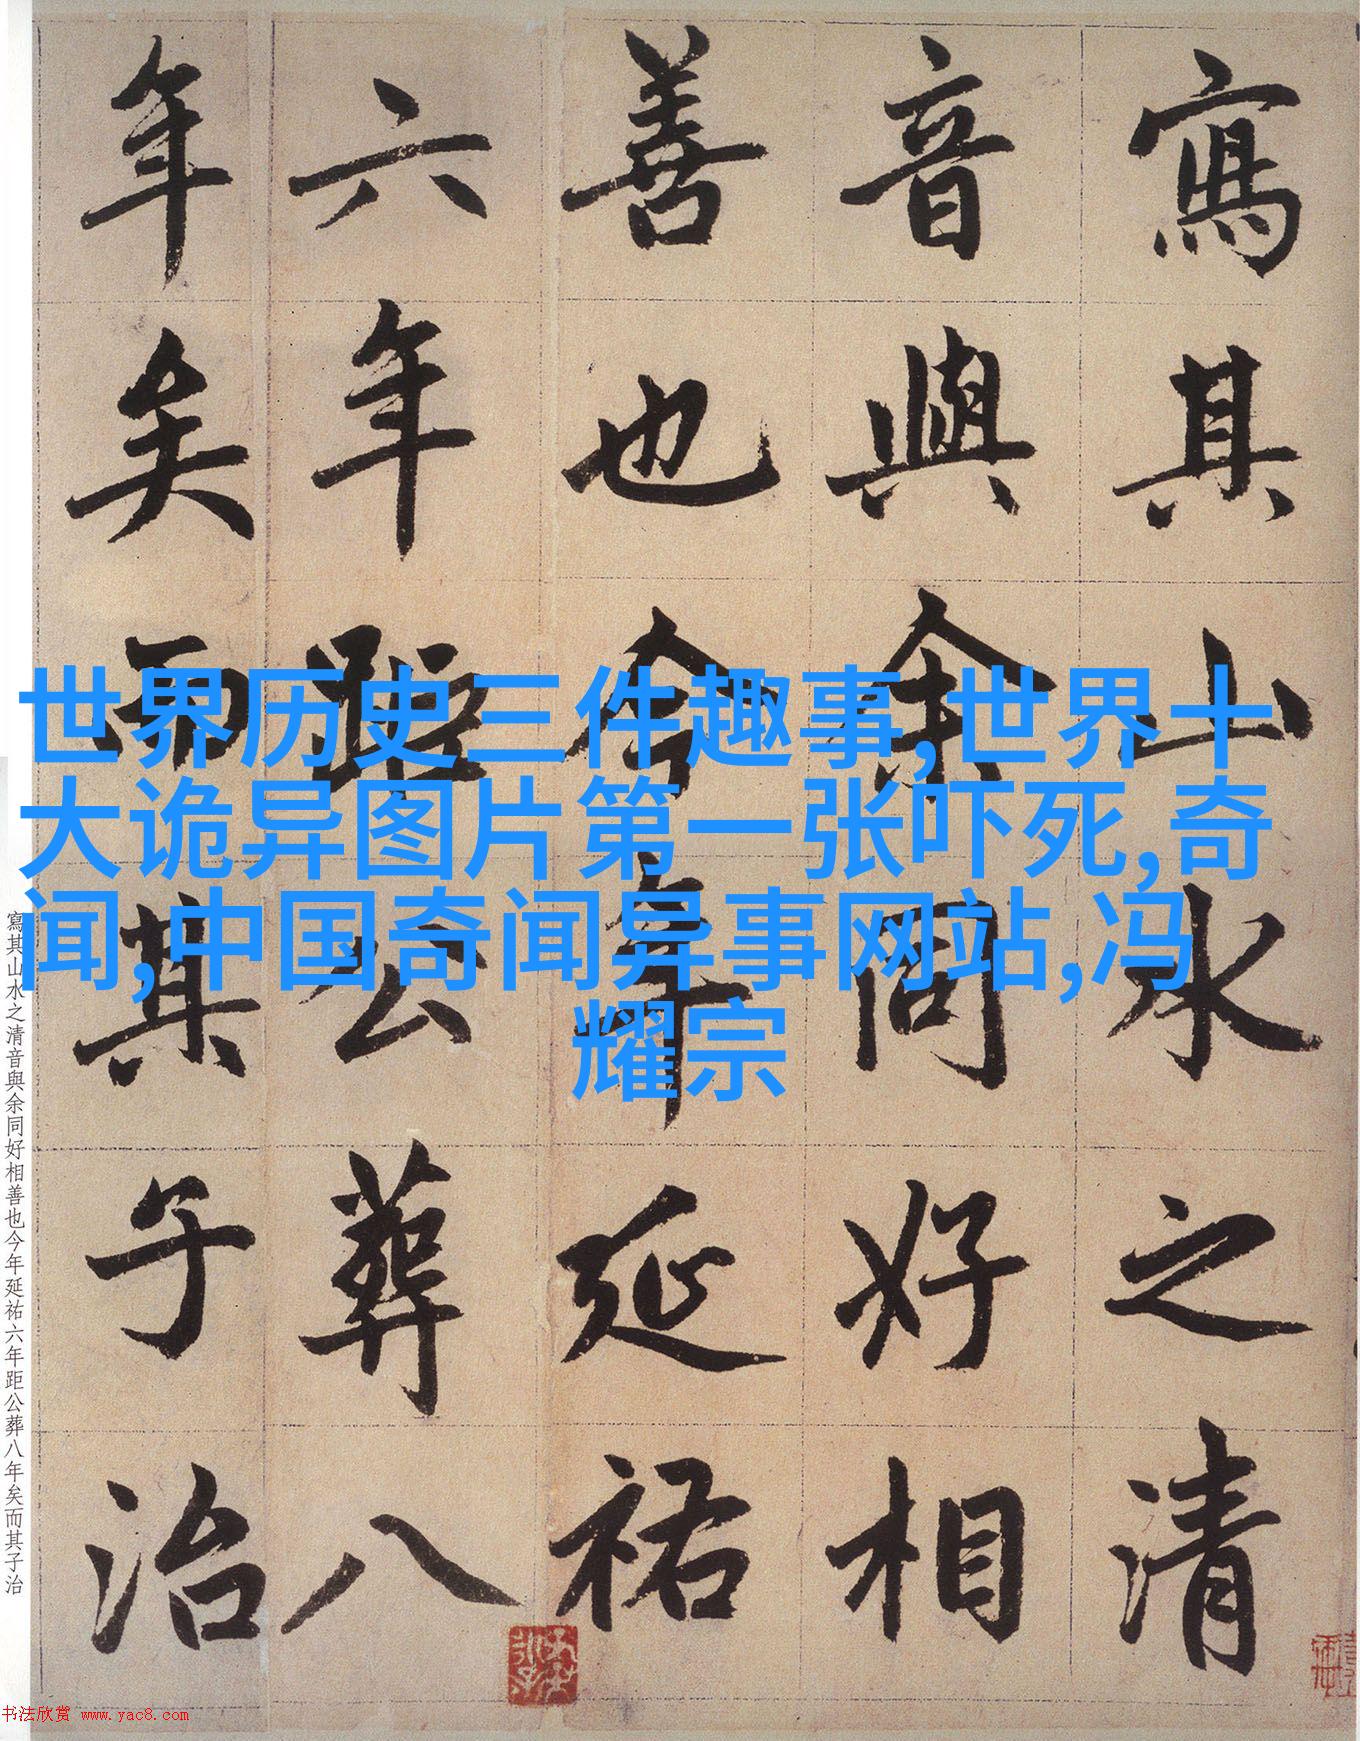 寫其山水之清
音與余同好相
善也今年延祐
六年距公葬八
年矣而其子治
世界历史三件趣事,世界十
大诡异图片第一张吓死,奇
闻,中国奇闻异事网站,冯
耀宗
寫其山水之清音與余同好相善也今年延祐六年距公葬八年矣而其子治
书法欣赏 www.yac8.com